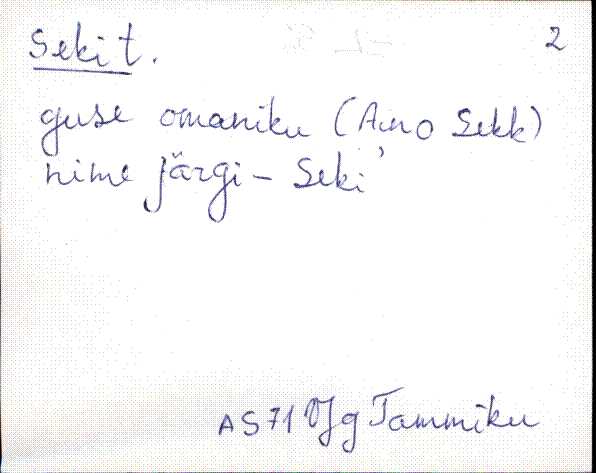 Seki t. 2
guse omaniku (Aino Sekk)
nime järgi – Seki'
AS 71 VJg Tammiku